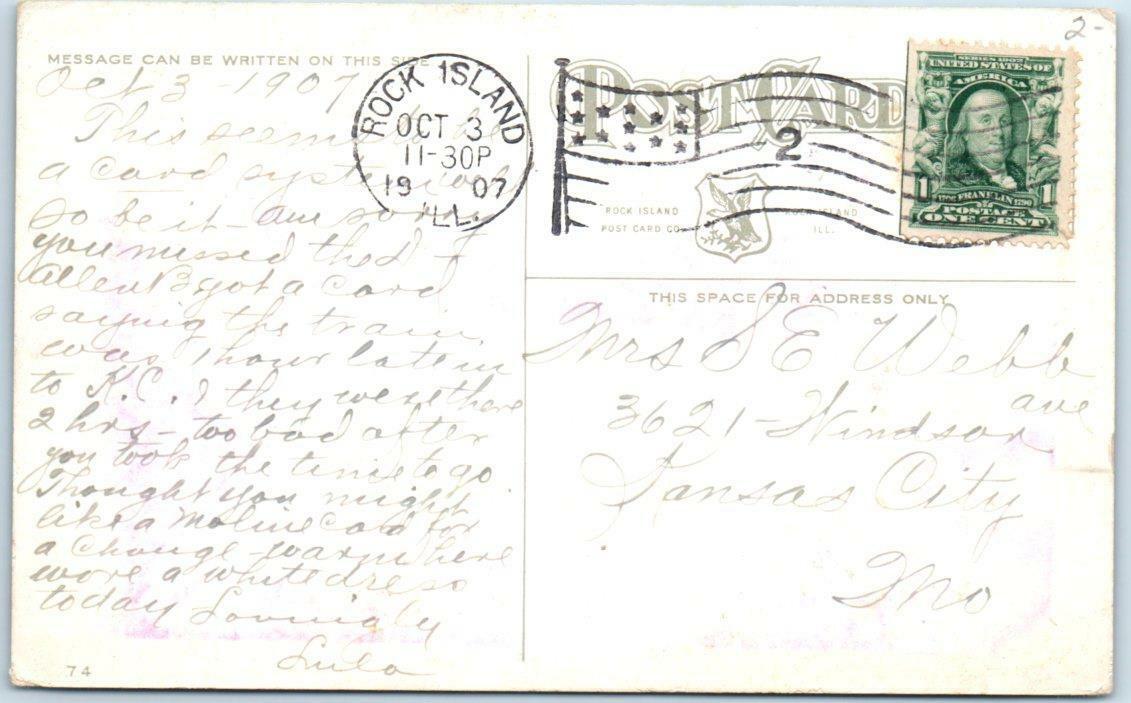 2-
MESSAGE CAN BE WRITTEN ON THIS SIDE
Oct 3 - 1907
This seems to be
a card system well
so be it - am sorry
you missed the
Allen B got a card
saying the train
was 1 hour late in
to K.C. & they were there
2 hrs - too bad after
you took the time to go
Thought you might
like a Moline card for
a change - warm here
wore a white dress
today Lovingly
Lula
74
ROCK ISLAND
OCT 3
11-30P
19 07
ILL.
POST CARD
2
ROCK ISLAND
POST CARD CO.
ROCK ISLAND
ILL.
SERIES 1902
UNITED STATES OF
AMERICA
1 1706 FRANKLIN 1790 1
POSTAGE
ONE CENT
THIS SPACE FOR ADDRESS ONLY
Mrs S E Webb
3621 - Windsor ave
Kansas City
Mo